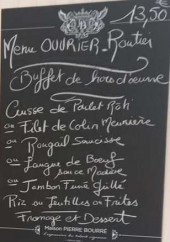 13,50
Menu OUVRIER_Routier
Buffet de hors d'oeuvre
Cuisse de Poulet Rôti
ou Filet de Colin Meunière
ou Rougail Saucisse
ou Langue de Boeuf
sauce Madère
ou Jambon Fumé Grillé
Riz ou Lentilles ou Frites
Fromage et Dessert
Maison PIERRE BOURRE